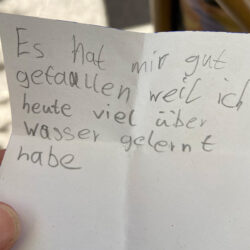 Es hat mir gut
gefaallen weil ich
heute viel über
wasser gelernt
habe